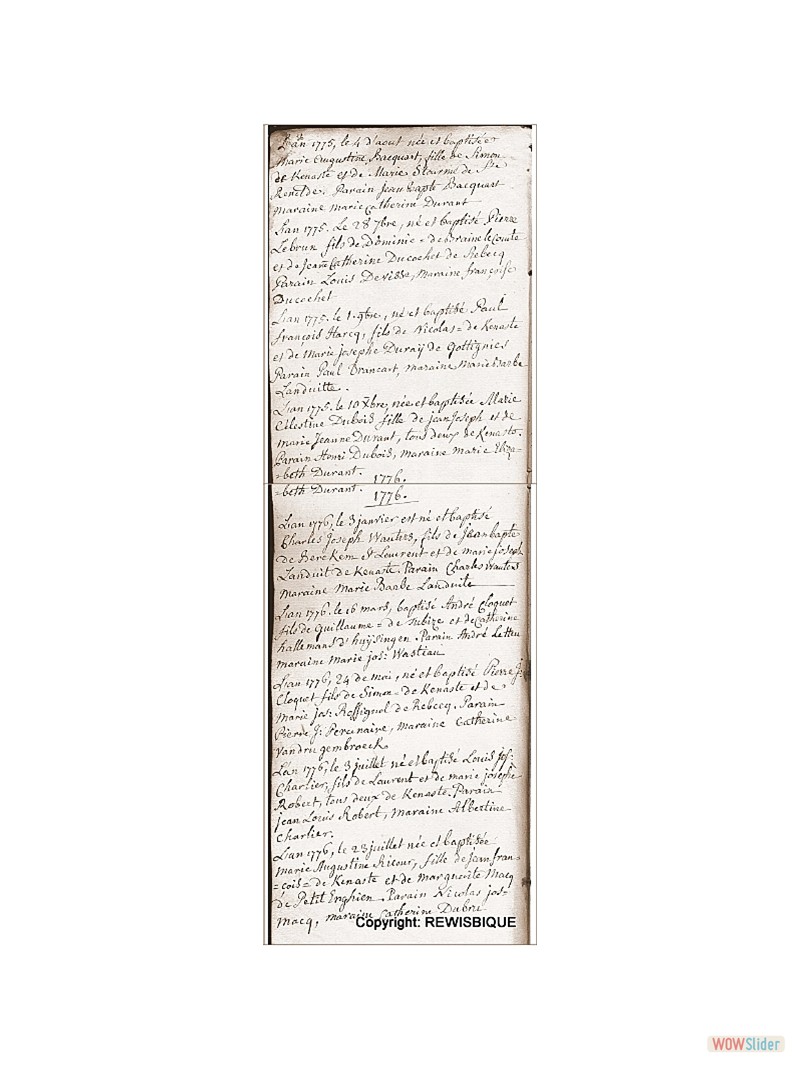 L'an 1775, le 4 d'aout née et baptisée
Marie Augustine Bacquart, fille de Simon
de Kenaste et de Marie de Ste
Renelde. Parain jean bapte Bacquart
maraine marie catherine Durant
L'an 1775. Le 28 7bre, né et baptisé Pierre
Lebrun fils de Dominic = de Braine le Comte
et de Jeane Catherine Ducochet de Rebecq
Parain Louis Devisse, maraine françoise
Ducochet
L'an 1775. le 1. 9bre, né et baptisé Paul
françois Harcq, fils de Nicolas = de Kenaste
et de Marie josephe Duray de Gottignies
Parain Paul Brancart, maraine Marie Barbe
Landuitte.
L'an 1775. le 10 Xbre, née et baptisée Marie
Célestine Dubois fille de jean Joseph et de
Marie Jeanne Durant, tous deux de Kenaste.
Parain Henri Dubois, maraine marie Eliza-
=beth Durant.
1776.
=beth Durant.
1776.
L'an 1776, le 3 janvier est né et baptisé
Charles Joseph Wauters, fils de Jean bapte
de Berckem St Laurent et de marie joseph
Landuit de Kenaste. Parain Charles Wauters
maraine Marie Barbe Landuite
L'an 1776. le 16 mars, baptisé André Cloquet
fils de Guillaume = de Tubize et de Catherine
hallemans d'huysingen. Parain André
maraine Marie jos: Wastiau
L'an 1776, 24 de mai, né et baptisé Pierre J:
Cloquet fils de Simon = de Kenaste et de
Marie jos: de Rebecq. Parain
Pierre J: maraine Catherine
Vandrugembroeck
L'an 1776, le 3 juillet né et baptisé Louis jos:
Charlier, fils de Laurent et de marie joseph
Robert, tous deux de Kenaste. Parain
jean Louis Robert, maraine Albertine
Charlier.
L'an 1776, le 23 juillet née et baptisée
Marie Augustine fille de jean fran-
=cois = de Kenaste et de marguerite Macq
de Petit Enghien. Parain Nicolas jos=
macq, maraine Catherine Dubru
Copyright: REWISBIQUE
WOWSlider